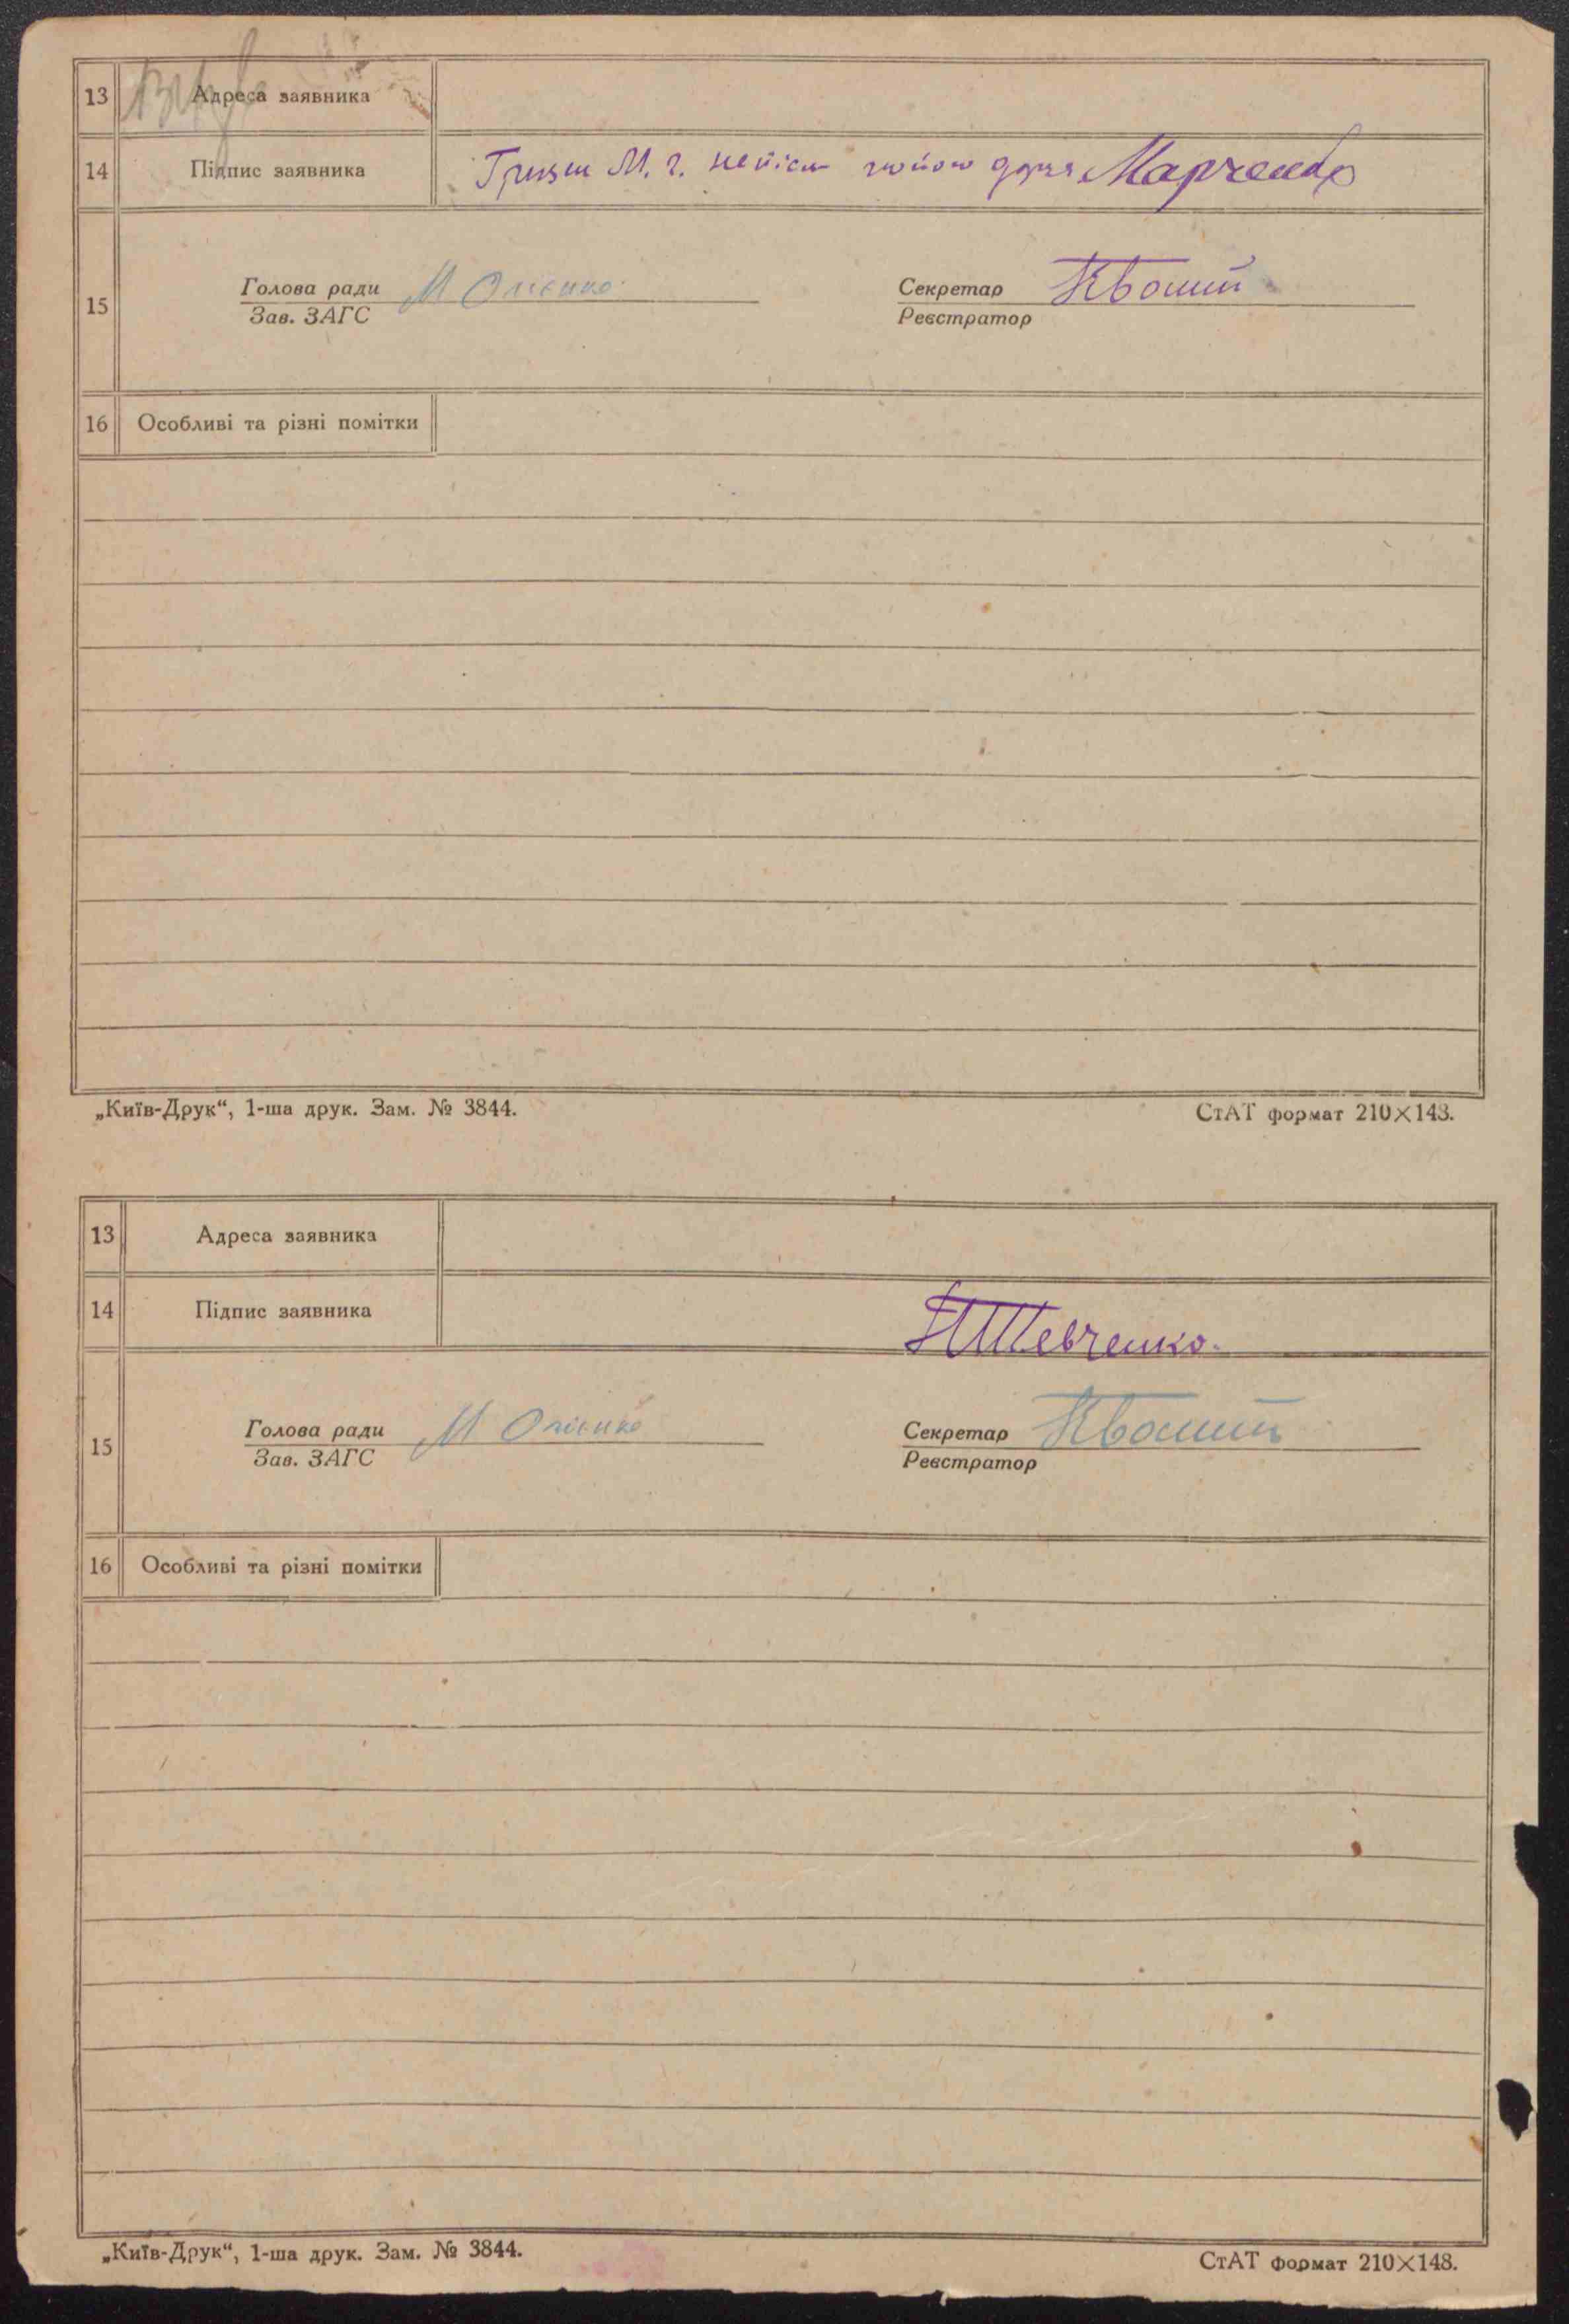 13 Адреса заявника
14 Підпис заявника М. г. Марченко
15 Голова ради Секретар
Зав. ЗАГС Реєстратор
16 Особливі та різні помітки
„Київ-Друк“, 1-ша друк. Зам. № 3844. СтАТ формат 210×148.
13 Адреса заявника
14 Підпис заявника Шевченко.
15 Голова ради Секретар
Зав. ЗАГС Реєстратор
16 Особливі та різні помітки
„Київ-Друк“, 1-ша друк. Зам. № 3844. СтАТ формат 210×148.